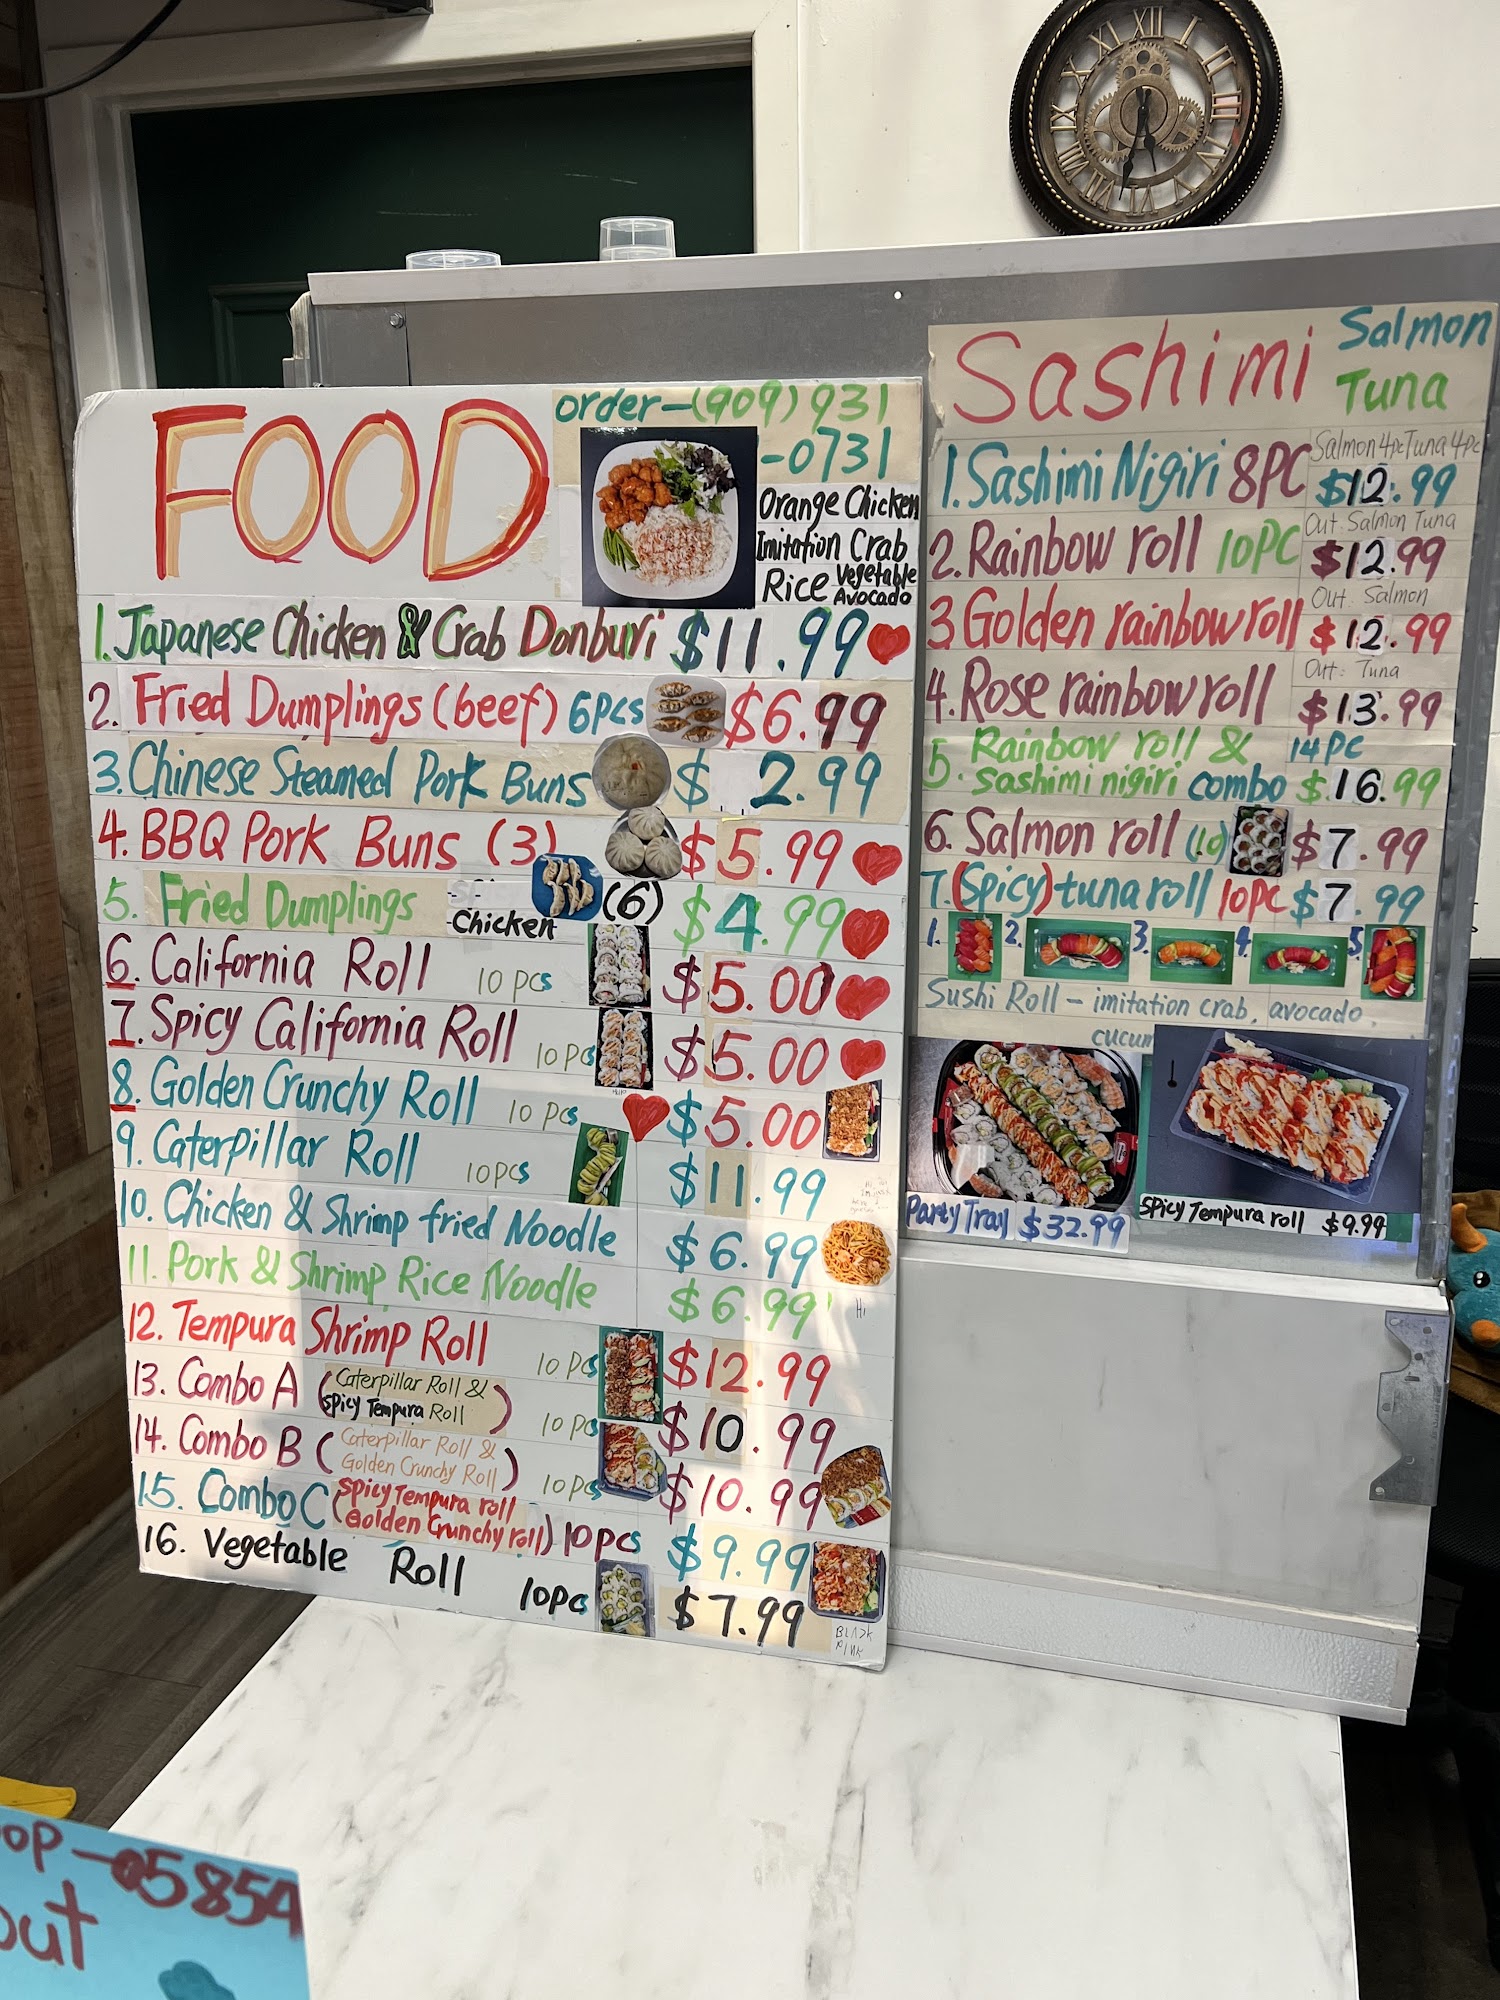 XII I II III IV V VI VII VIII IX X XI
FOOD
order-(909) 931
-0731
Orange Chicken
Imitation Crab
Rice Vegetable
Avocado
1. Japanese Chicken & Crab Donburi $11.99
2. Fried Dumplings (beef) 6pcs $6.99
3. Chinese Steamed Pork Buns $2.99
4. BBQ Pork Buns (3) $5.99
5. Fried Dumplings Chicken (6) $4.99
6. California Roll 10 pcs $5.00
7. Spicy California Roll 10 pcs $5.00
8. Golden Crunchy Roll 10 pcs $5.00
9. Caterpillar Roll 10pcs $11.99
10. Chicken & Shrimp fried Noodle $6.99
11. Pork & Shrimp Rice Noodle $6.99
Hi
12. Tempura Shrimp Roll 10 pcs $12.99
13. Combo A (Caterpillar Roll &
Spicy Tempura Roll) 10 pcs $10.99
14. Combo B (Caterpillar Roll &
Golden Crunchy Roll) 10 pcs $10.99
15. Combo C (Spicy Tempura roll
Golden Crunchy roll) 10pcs $9.99
16. Vegetable Roll 10pc $7.99
BLACK
PINK
Sashimi Salmon
Tuna
Salmon 4pc Tuna 4pc
1. Sashimi Nigiri 8PC $12.99
Out: Salmon Tuna
2. Rainbow roll 10PC $12.99
Out: Salmon
3 Golden rainbow roll $12.99
Out: Tuna
4. Rose rainbow roll $13.99
5. Rainbow roll & 14PC
sashimi nigiri combo $16.99
6. Salmon roll (10) $7.99
7. (Spicy) tuna roll 10pc $7.99
1. 2. 3. 4. 5.
Sushi Roll - imitation crab, avocado,
cucum
Party Tray $32.99
Spicy Tempura roll $9.99
OP-05854
out